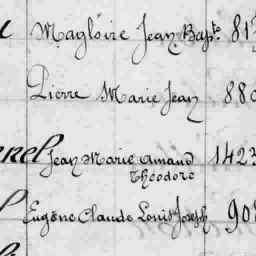 Magloire Jean Bapte. 81
Pierre Marie Jean 88
nel Jean Marie Amand 1423
Théodore
Eugène Claude Louis Joseph 90